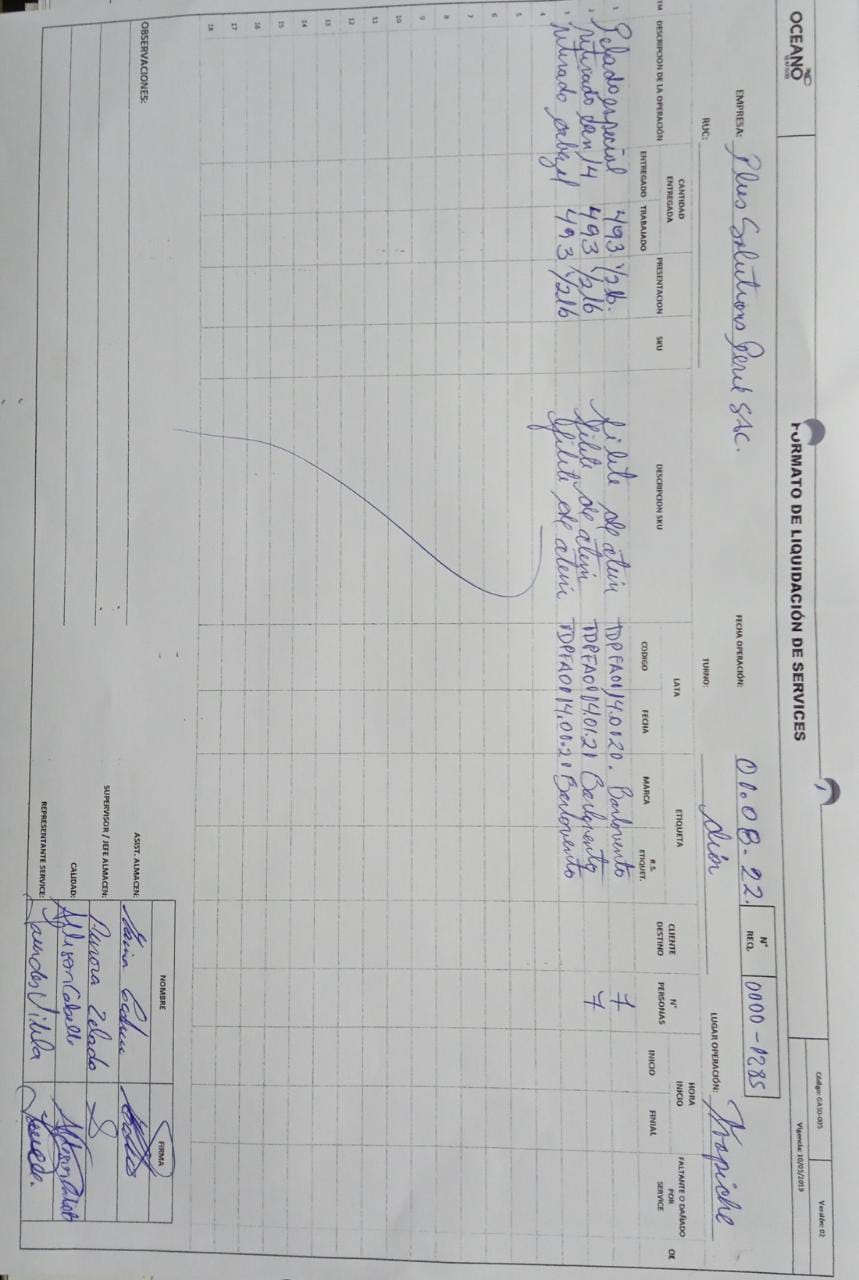 OCEANO
SEAFOOD
FORMATO DE LIQUIDACIÓN DE SERVICES
Código: GASO-005
Versión: 02
Vigencia: 10/05/2019
EMPRESA: Plus Solutions Perú SAC.
FECHA OPERACIÓN: 01.08.22.
N° REQ. 0000-1285
RUC:
TURNO: día
LUGAR OPERACIÓN: Trapiche
DESCRIPCION DE LA OPERACIÓN
CANTIDAD ENTREGADA
ENTREGADO TRABAJADO
PRESENTACION
SKU
DESCRIPCION SKU
LATA
CODIGO FECHA
ETIQUETA
MARCA R.S. ETIQUET.
CLIENTE DESTINO
N° PERSONAS
HORA INICIO
INICIO FINIAL
FALTANTE O DAÑADO POR SERVICE
OE
1 Pelado especial 493 1/2 lb. filete de atún TDPFA01 14.01.20. Barlovento 7
2 14 493 1/2 lb filete de atún TDPFA01 14.01.21 Barlovento 7
3 493 1/2 lb filete de atún TDPFA01 14.01.21 Barlovento
4
5
6
7
8
9
10
11
12
13
14
15
16
17
18
OBSERVACIONES:
NOMBRE FIRMA
ASIST. ALMACEN:
SUPERVISOR / JEFE ALMACEN: Aurora Zelada
CALIDAD: Allison
REPRESENTANTE SERVICE: Vilela